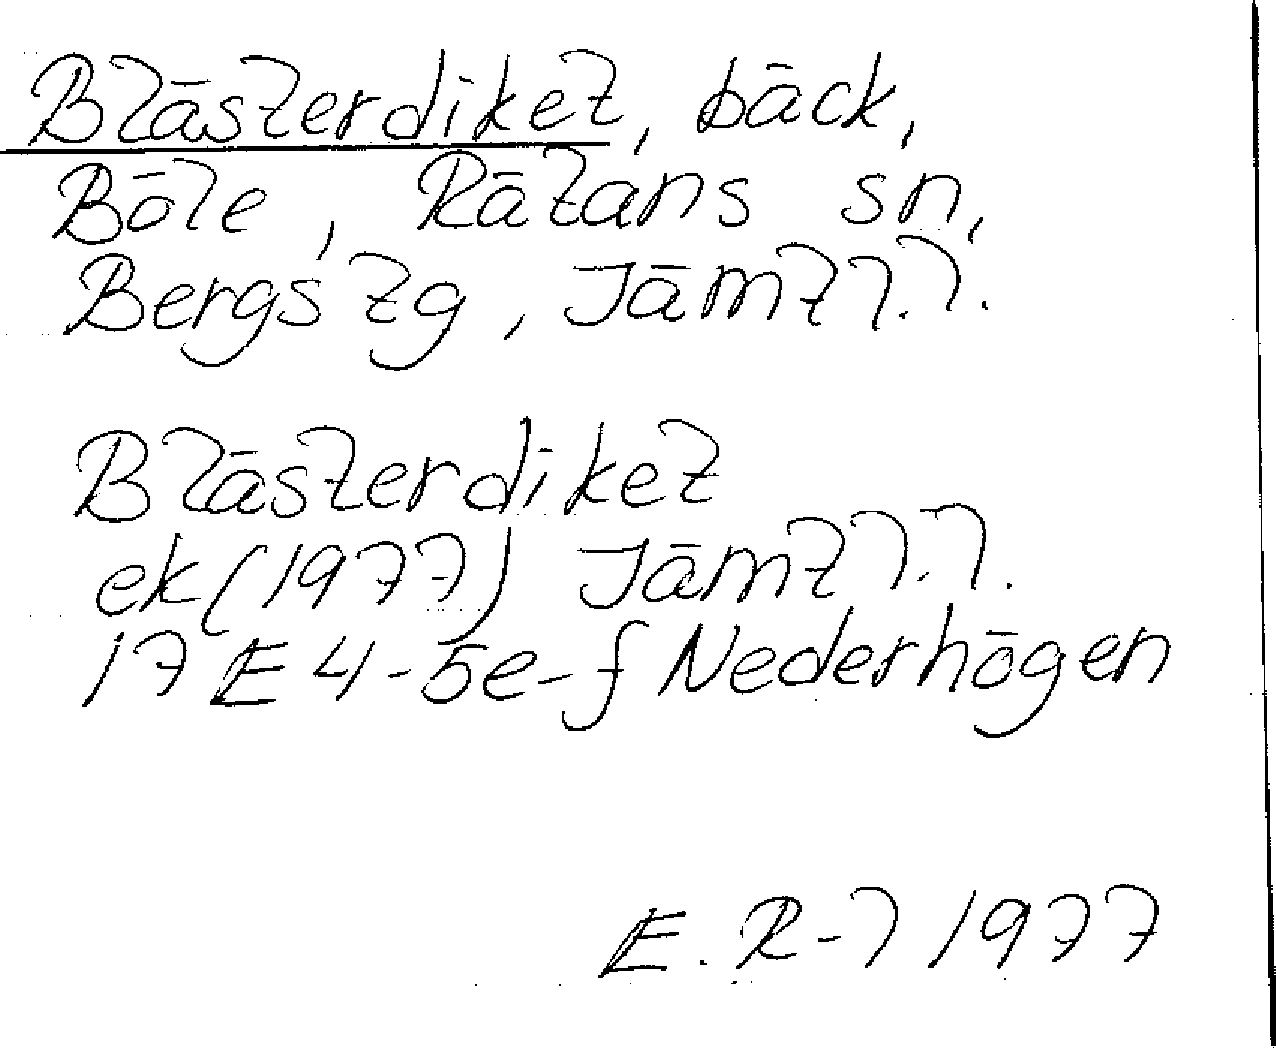 Blästerdiket, bäck,
Böle, Rätans sn,
Bergs tg, Jämtl.l.
Blästerdiket
ek(1977) Jämtl.l.
17E 4-5e-f Nederhögen
E. R-l 1977